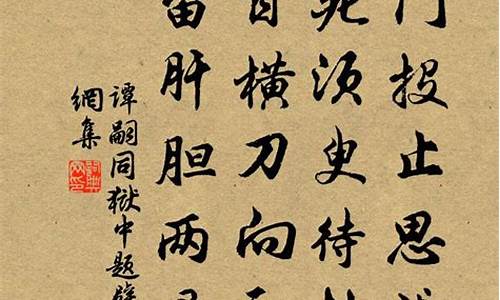 门投止思
死须臾待
自横刀向
留肝胆两
谭嗣同獄中题壁
網集